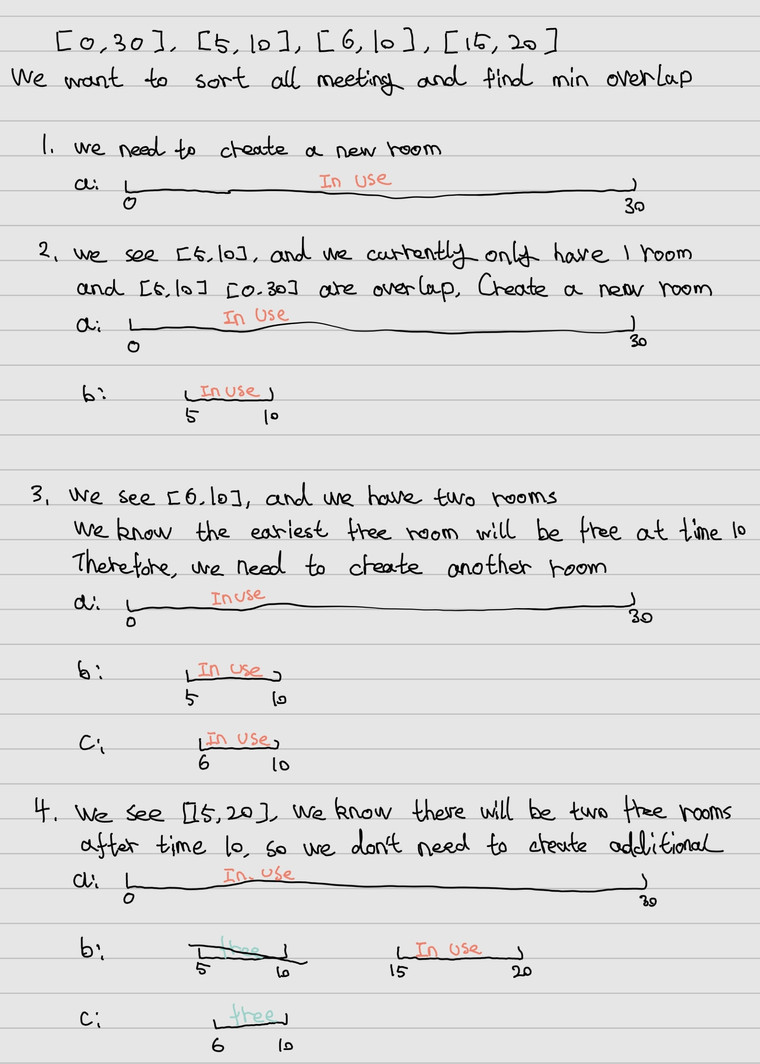 [0,30], [5,10], [6,10], [15,20]
We want to sort all meeting and find min overlap
1. we need to create a new room
a: In Use
0 30
2, we see [5,10], and we currently only have 1 room
and [5,10] [0.30] are overlap, Create a new room
a: In Use
0 30
b: In use
5 10
3, we see [6.10], and we have two rooms
We know the eariest free room will be free at time 10
Therefore, we need to create another room
a: In use
0 30
b: In use
5 10
C: In Use
6 10
4. We see [15,20], We know there will be two free rooms
after time 10, so we don't need to create additional
a: In Use
0 30
b: free In Use
5 10 15 20
C: free
6 10